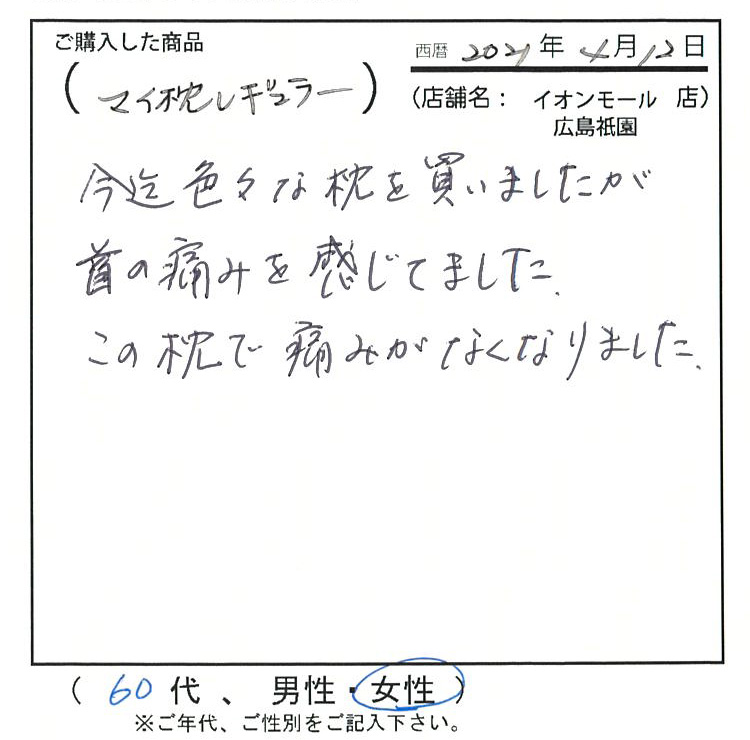 ご購入した商品
西暦 2021年 4月12日
(マイ枕レギュラー)
(店舗名： イオンモール 店)
広島祇園
今迄色々な枕を買いましたが
首の痛みを感じてました.
この枕で痛みがなくなりました.
( 60代 、 男性・女性 )
※ご年代、ご性別をご記入下さい。